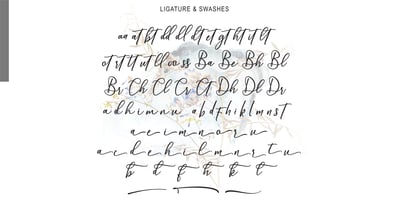 LIGATURE & SWASHES
aa at bt dd dl dt et gt ht it lt
ot rt tt ut ll oo ss Ba Be Bh Bl
Br Ch Cl Cr Ct Dh Dl Dr
a d h i m n u a b d f h k l m n s t
a e i m n o r u
a c d e h i l m n r t u
b d f h k t